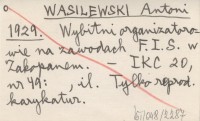 WASILEWSKI Antoni
1929. Wybitni organizatoro-
wie na zawodach F.I.S. w
Zakopanem. - IKC 20,
nr 49: , il. Tylko reprod.
karykatur.